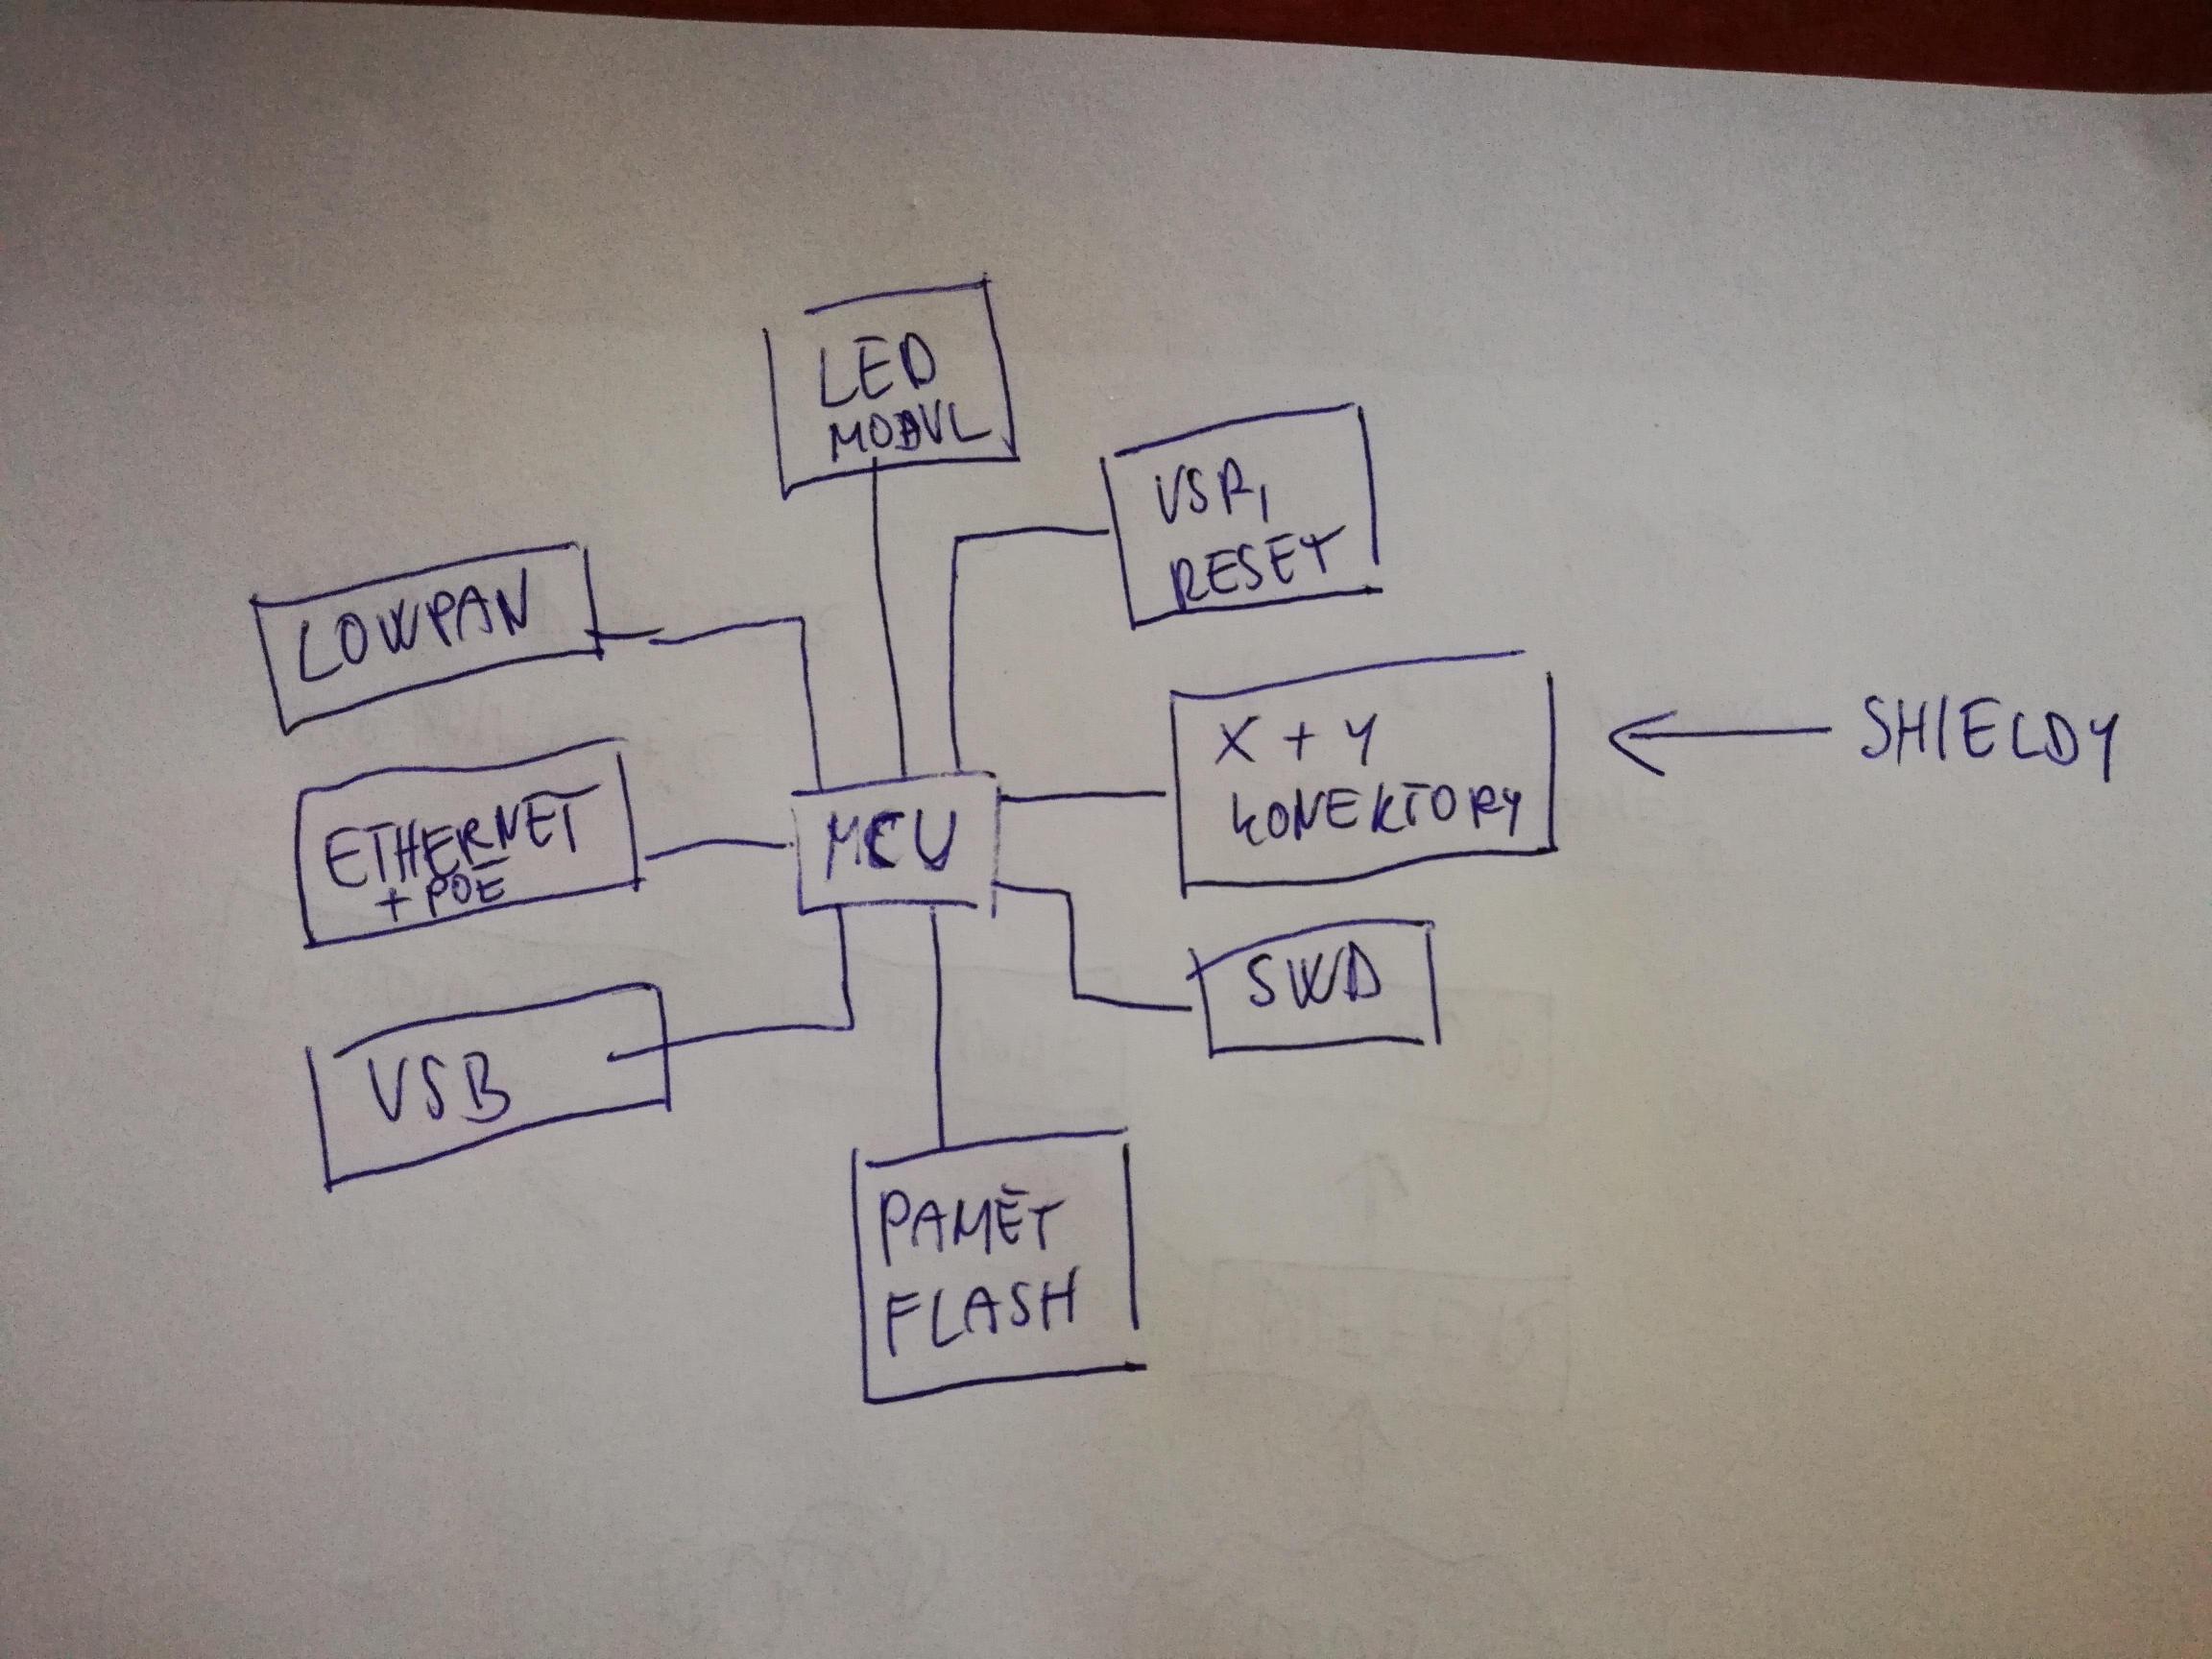 LED
MODUL
USR,
RESET
LOWPAN
X + Y
KONEKTORY
SHIELDY
ETHERNET
+ POE
MCU
SWD
USB
PAMĚT
FLASH